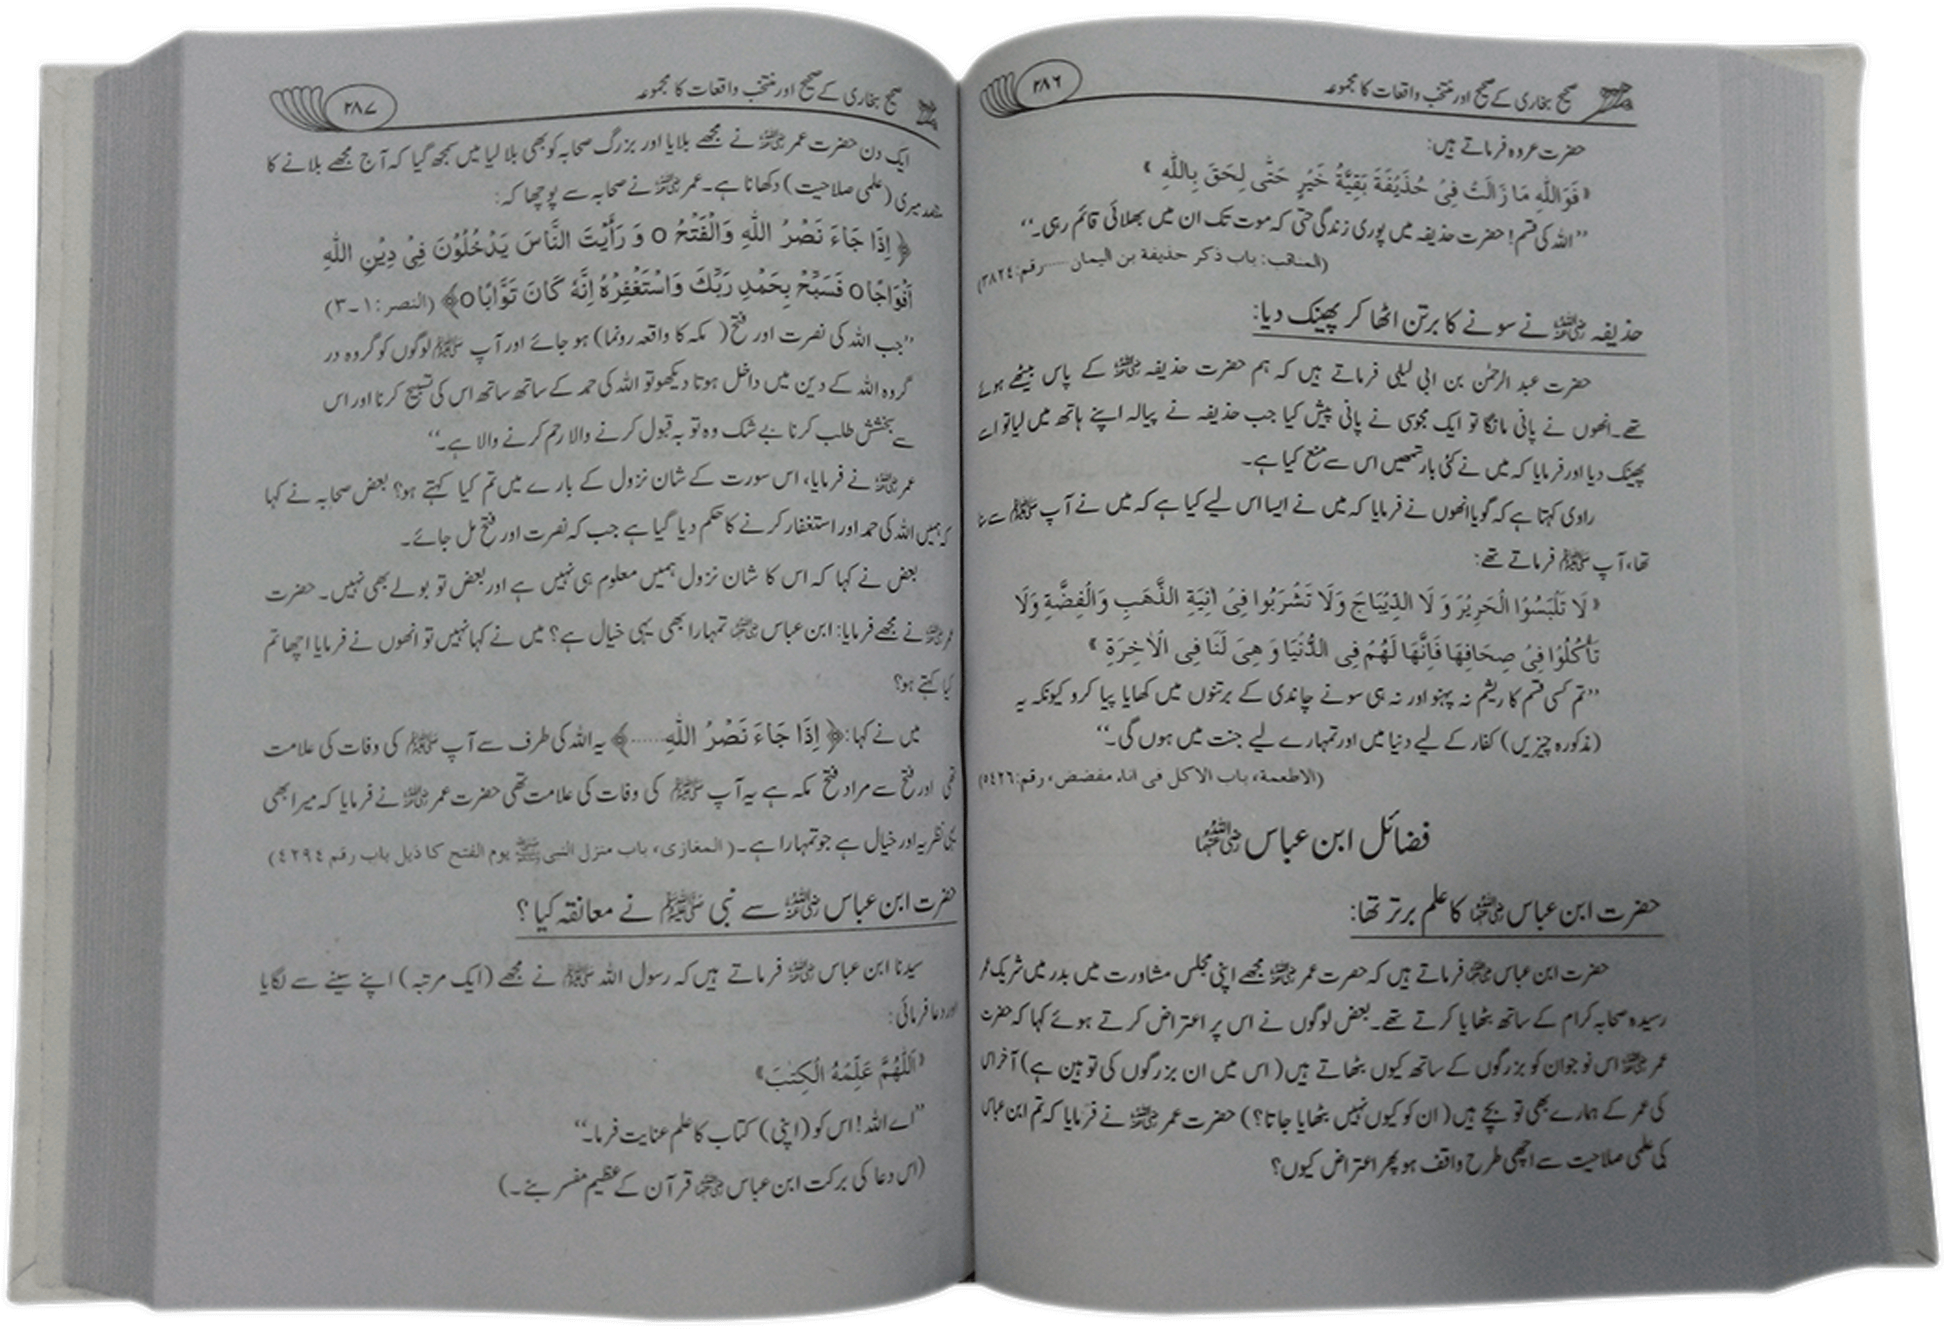 صحیح بخاری کے صحیح اور منتخب واقعات کا مجموعہ ٢٨٦
حضرت عروہ فرماتے ہیں:
« فَوَاللّٰهِ مَا زَالَتْ فِىْ حُذَيْفَةَ بَقِيَّةُ خَيْرٍ حَتّٰى لَحِقَ بِاللّٰهِ »
’’اللہ کی قسم! حضرت حذیفہ میں پوری زندگی حتی کہ موت تک ان میں بھلائی قائم رہی۔‘‘
(المناقب: باب ذکر حذیفة بن الیمان......رقم: ٣٨٢٤)
حذیفہ رضی اللہ عنہ نے سونے کا برتن اٹھا کر پھینک دیا:
حضرت عبد الرحمٰن بن ابی لیلی فرماتے ہیں کہ ہم حضرت حذیفہ رضی اللہ عنہ کے پاس بیٹھے ہوئے
تھے۔ انھوں نے پانی مانگا تو ایک مجوسی نے پانی پیش کیا جب حذیفہ نے پیالہ اپنے ہاتھ میں لیا تو اسے
پھینک دیا اور فرمایا کہ میں نے کئی بار تمھیں اس سے منع کیا ہے۔
راوی کہتا ہے کہ گویا انھوں نے فرمایا کہ میں نے ایسا اس لیے کیا ہے کہ میں نے آپ ﷺ سے سنا
تھا، آپ ﷺ فرماتے تھے:
« لَا تَلْبَسُوْا الْحَرِيْرَ وَ لَا الدِّيْبَاجَ وَلَا تَشْرَبُوا فِىْ اٰنِيَةِ الذَّهَبِ وَالْفِضَّةِ وَلَا
تَأْكُلُوْا فِىْ صِحَافِهَا فَاِنَّهَا لَهُمْ فِى الدُّنْيَا وَ هِىَ لَنَا فِى الْاٰخِرَةِ »
’’تم کسی قسم کا ریشم نہ پہنو اور نہ ہی سونے چاندی کے برتنوں میں کھایا پیا کرو کیونکہ یہ
(مذکورہ چیزیں) کفار کے لیے دنیا میں اور تمہارے لیے جنت میں ہوں گی۔‘‘
(الاطعمة، باب الاکل فی اناء مفضض، رقم: ٥٤٢٦)
فضائل ابن عباس رضی اللہ عنہما
حضرت ابن عباس رضی اللہ عنہما کا علم برتر تھا:
حضرت ابن عباس رضی اللہ عنہما فرماتے ہیں کہ حضرت عمر رضی اللہ عنہ مجھے اپنی مجلس مشاورت میں بدر میں شریک عمر
رسیدہ صحابہ کرام کے ساتھ بٹھایا کرتے تھے۔ بعض لوگوں نے اس پر اعتراض کرتے ہوئے کہا کہ حضرت
عمر رضی اللہ عنہ اس نوجوان کو بزرگوں کے ساتھ کیوں بٹھاتے ہیں (اس میں ان بزرگوں کی توہین ہے) آخر اس
کی عمر کے ہمارے بھی تو بچے ہیں (ان کو کیوں نہیں بٹھایا جاتا؟) حضرت عمر رضی اللہ عنہ نے فرمایا کہ تم ابن عباس
کی علمی صلاحیت سے اچھی طرح واقف ہو پھر اعتراض کیوں؟
صحیح بخاری کے صحیح اور منتخب واقعات کا مجموعہ ٢٨٧
ایک دن حضرت عمر رضی اللہ عنہ نے مجھے بلایا اور بزرگ صحابہ کو بھی بلا لیا میں سمجھ گیا کہ آج مجھے بلانے کا
مقصد میری (علمی صلاحیت) دکھانا ہے۔ عمر رضی اللہ عنہ نے صحابہ سے پوچھا کہ:
﴿ اِذَا جَاءَ نَصْرُ اللّٰهِ وَالْفَتْحُ o وَ رَأَيْتَ النَّاسَ يَدْخُلُوْنَ فِىْ دِيْنِ اللّٰهِ
اَفْوَاجًا o فَسَبِّحْ بِحَمْدِ رَبِّكَ وَاسْتَغْفِرْهُ اِنَّهُ كَانَ تَوَّابًا o ﴾ (النصر: ١۔٣)
’’جب اللہ کی نصرت اور فتح (مکہ کا واقعہ رونما) ہو جائے اور آپ ﷺ لوگوں کو گروہ در
گروہ اللہ کے دین میں داخل ہوتا دیکھو تو اللہ کی حمد کے ساتھ ساتھ اس کی تسبیح کرنا اور اس
سے بخشش طلب کرنا بے شک وہ توبہ قبول کرنے والا رحم کرنے والا ہے۔‘‘
عمر رضی اللہ عنہ نے فرمایا، اس سورت کے شان نزول کے بارے میں تم کیا کہتے ہو؟ بعض صحابہ نے کہا
کہ ہمیں اللہ کی حمد اور استغفار کرنے کا حکم دیا گیا ہے جب کہ نصرت اور فتح مل جائے۔
بعض نے کہا کہ اس کا شان نزول ہمیں معلوم ہی نہیں ہے اور بعض تو بولے بھی نہیں۔ حضرت
عمر رضی اللہ عنہ نے مجھے فرمایا: ابن عباس رضی اللہ عنہما تمہارا بھی یہی خیال ہے؟ میں نے کہا نہیں تو انھوں نے فرمایا اچھا تم
کیا کہتے ہو؟
میں نے کہا: ﴿ اِذَا جَاءَ نَصْرُ اللّٰهِ...... ﴾ یہ اللہ کی طرف سے آپ ﷺ کی وفات کی علامت
تھی اور فتح سے مراد فتح مکہ ہے یہ آپ ﷺ کی وفات کی علامت تھی حضرت عمر رضی اللہ عنہ نے فرمایا کہ میرا بھی
یہی نظریہ اور خیال ہے جو تمہارا ہے۔ (المغازی، باب منزل النبی ﷺ یوم الفتح کا ذیل باب رقم ٤٢٩٤)
حضرت ابن عباس رضی اللہ عنہ سے نبی ﷺ نے معانقہ کیا؟
سیدنا ابن عباس رضی اللہ عنہ فرماتے ہیں کہ رسول اللہ ﷺ نے مجھے (ایک مرتبہ) اپنے سینے سے لگایا
اور دعا فرمائی:
«اَللّٰهُمَّ عَلِّمْهُ الْكِتٰبَ»
’’اے اللہ! اس کو (اپنی) کتاب کا علم عنایت فرما۔‘‘
(اس دعا کی برکت ابن عباس رضی اللہ عنہما قرآن کے عظیم مفسر بنے۔)